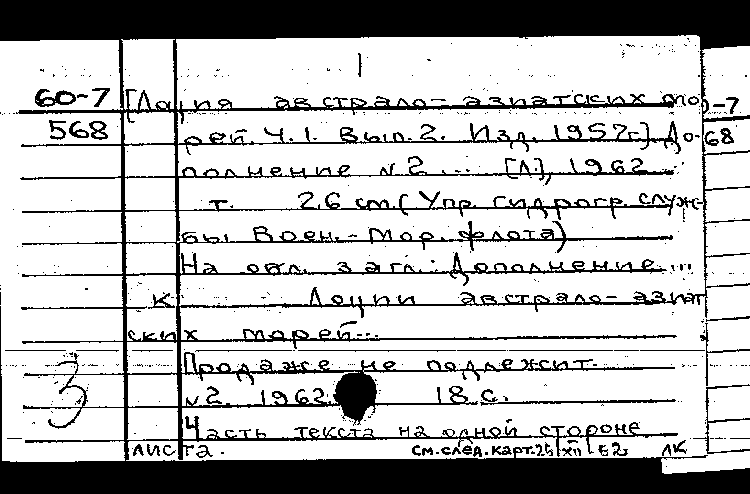 60-7 [Лоция австрало-азиатских мо-
568 рей. Ч.1. Вып.2. Изд. 1957г.] До-
полнение №2... [Л], 1962
т. 26 см. (Упр. гидрогр. служ-
бы Воен.-Мор. флота)
На обл. загл.: Дополнение...
к Лоции австрало-азиат
ских морей...
Продаже не подлежит.
№2. 1962. 18 с.
3 Часть текста на одной стороне
листа. см.след.карт. ЛК
-7
68